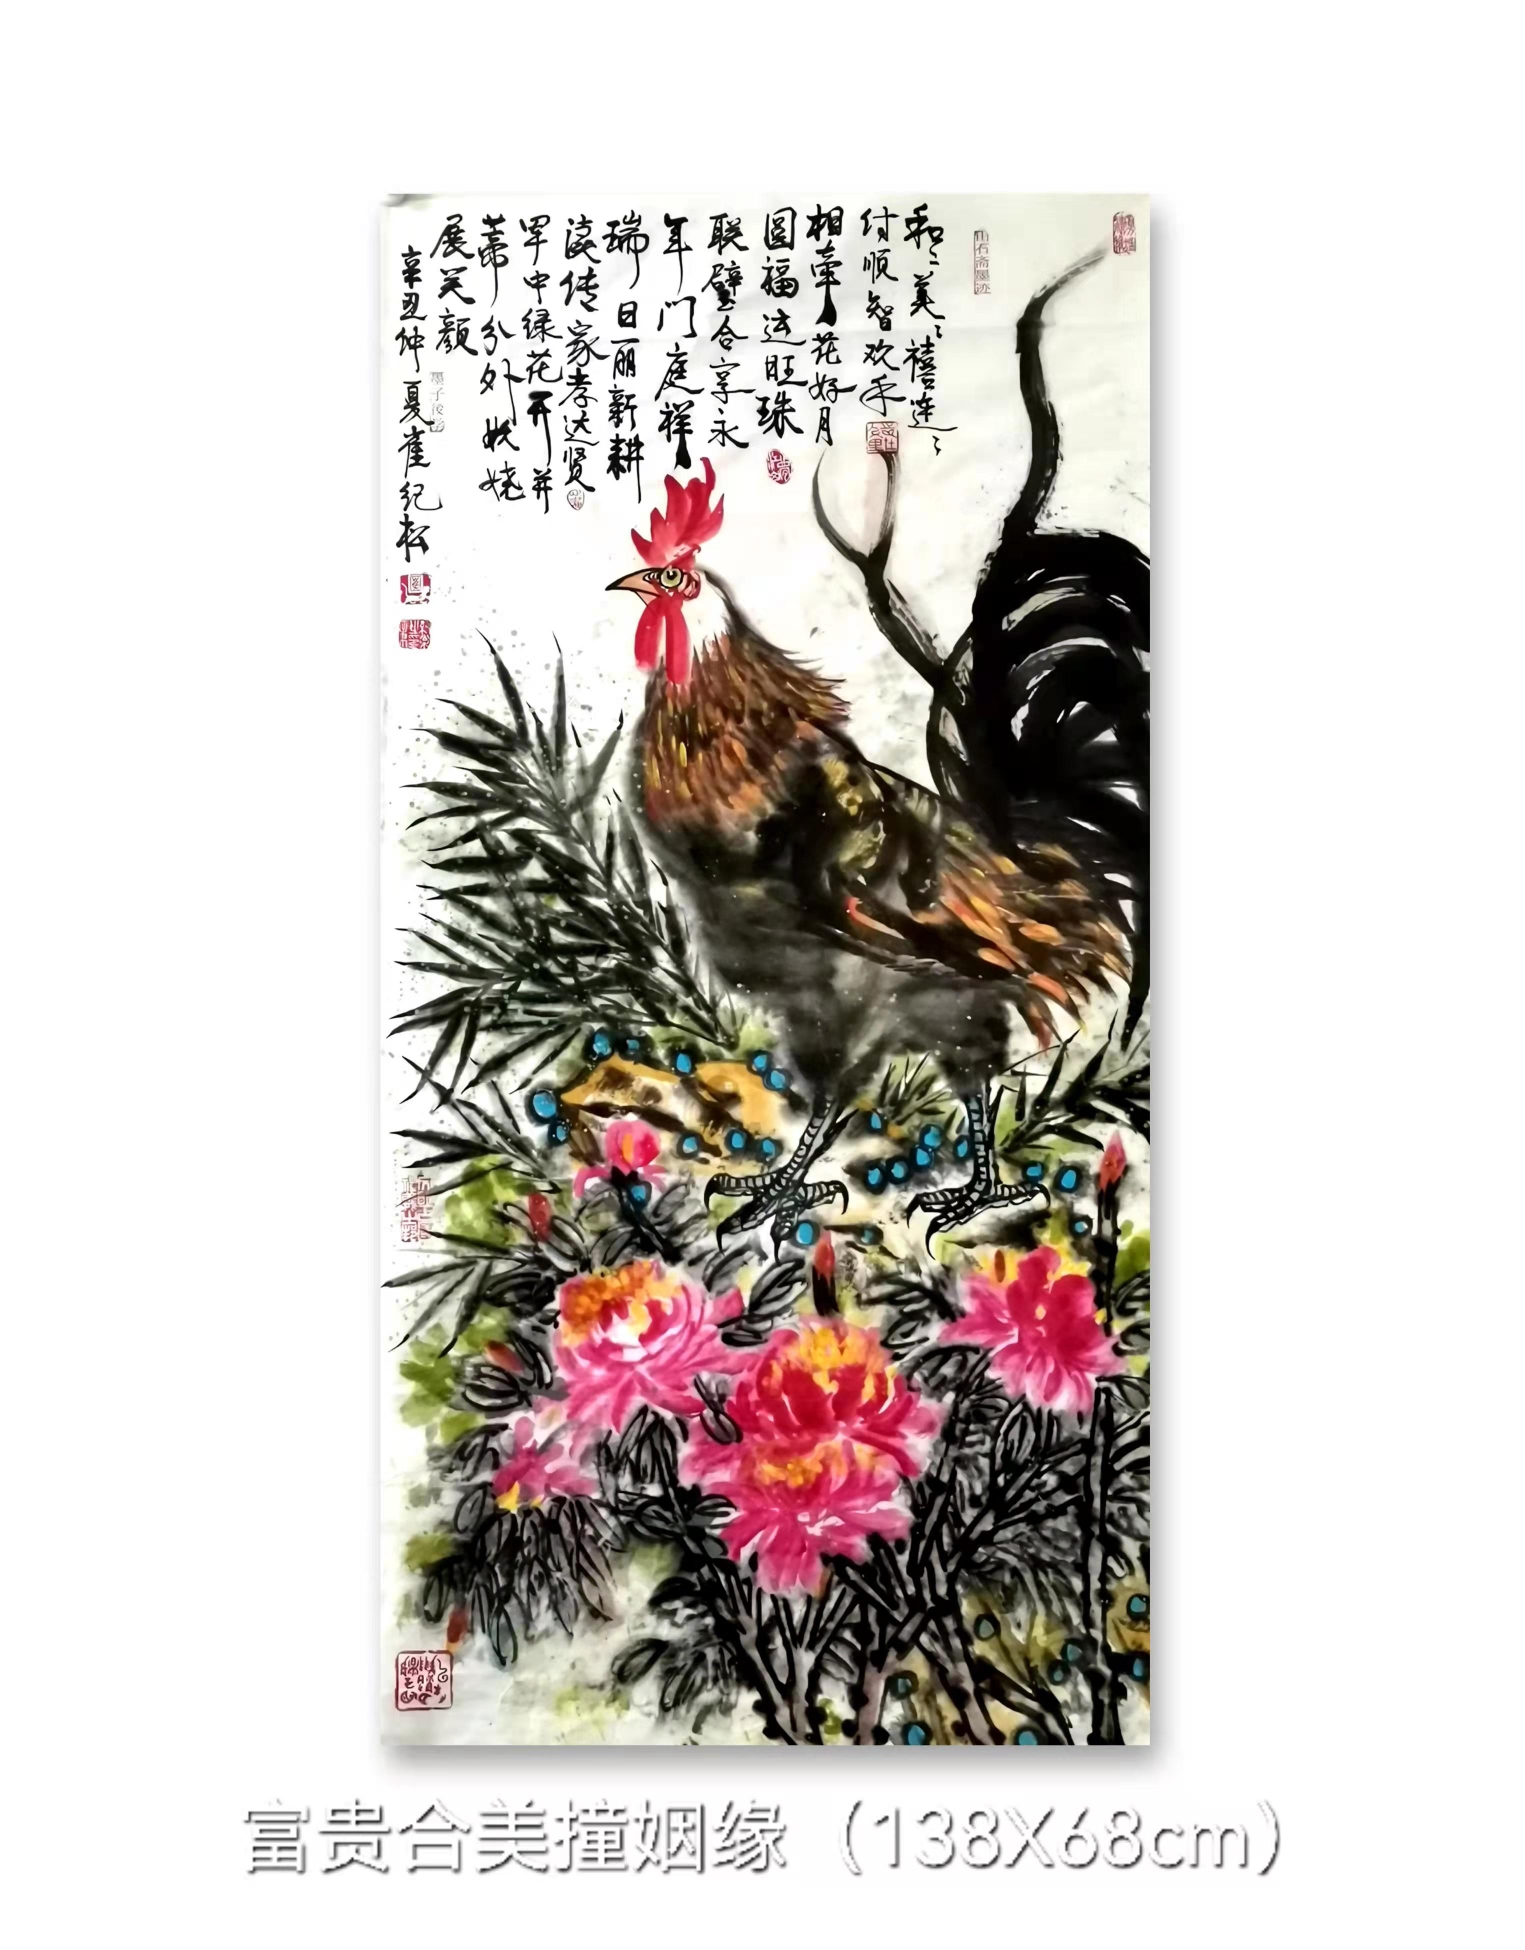 和〻美〻禧连〻
付顺智欢手
相牵花好月
圆福运旺珠
联璧合享永
年门庭祥
瑞日丽新耕
读传家孝达贤
罕中绿花开并
蒂分外妖娆
展笑颜
辛丑仲夏崔纪松
富贵合美撞姻缘（138X68cm）